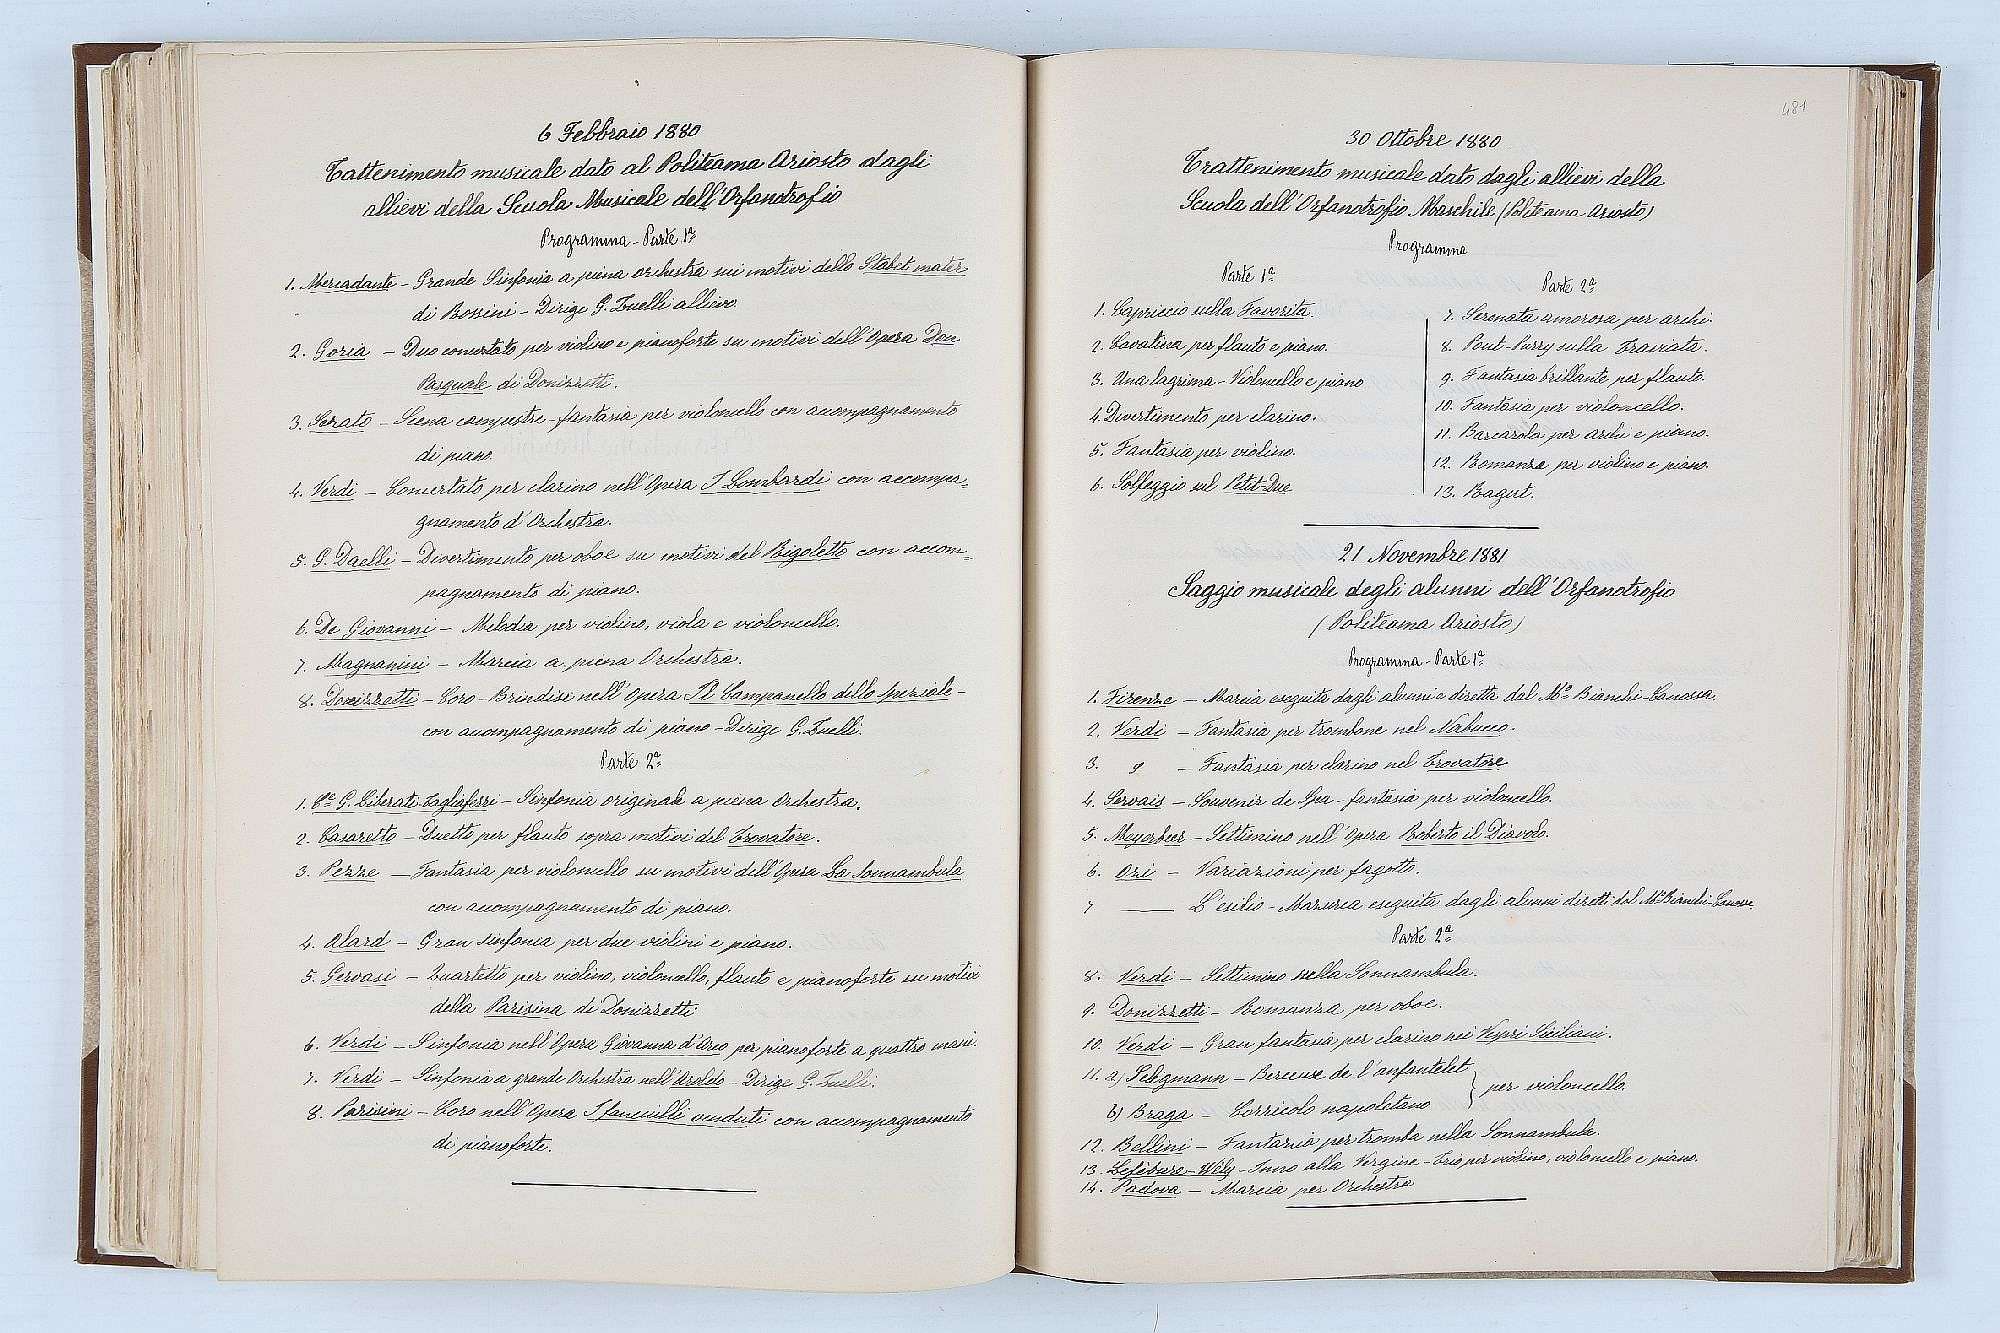 6 Febbraio 1880
Tattenimento musicale dato al Politeama Ariosto dagli
allievi della Scuola Musicale dell'Orfanotrofio
Programma - Parte 1ª
1. Mercadante - Grande Sinfonia a piena orchestra sui motivi dello Stabat mater
di Rossini - Dirige G. Zuelli allievo.
2. Goria - Duo concertato per violino e pianoforte su motivi dell'Opera Don
Pasquale di Donizzetti.
3. Serato - Scena campestre - fantasia per violoncello con accompagnamento
di piano.
4. Verdi - Concertato per clarino nell'Opera I Lombardi con accompa-
gnamento d'Orchestra.
5. G. Daelli - Divertimento per oboe su motivi del Rigoletto con accom-
pagnamento di piano.
6. De Giovanni - Melodia per violino, viola e violoncello.
7. Magnanini - Marcia a piena Orchestra.
8. Donizzetti - Coro - Brindisi nell'Opera Il Campanello dello speziale -
con accompagnamento di piano - Dirige G. Zuelli.
Parte 2ª
1. G. Liberati Tagliaferri - Sinfonia originale a piena Orchestra.
2. Casaretto - Duetto per flauto sopra motivi del Trovatore.
3. Pezze - Fantasia per violoncello su motivi dell'Opera La Sonnambula
con accompagnamento di piano.
4. Alard - Gran sinfonia per due violini e piano.
5. Gervasi - Quartetto per violino, violoncello, flauto e pianoforte su motivi
della Parisina di Donizzetti
6. Verdi - Sinfonia nell'Opera Giovanna d'Arco per pianoforte a quattro mani.
7. Verdi - Sinfonia a grande Orchestra nell'Aroldo - Dirige G. Zuelli.
8. Parisini - Coro nell'Opera I fanciulli venduti con accompagnamento
di pianoforte.
481
30 Ottobre 1880
Trattenimento musicale dato dagli allievi della
Scuola dell'Orfanotrofio Maschile (Politeama Ariosto)
Programma
Parte 1ª
1. Capriccio sulla Favorita.
2. Cavatina per flauto e piano.
3. Una lagrima - Violoncello e piano
4. Divertimento per clarino.
5. Fantasia per violino.
6. Solfeggio sul Petit-Duc
Parte 2ª
7. Serenata amorosa per archi.
8. Pout-Purry sulla Traviata.
9. Fantasia brillante per flauto.
10. Fantasia per violoncello.
11. Barcarola per archi e piano.
12. Romanza per violino e piano.
13. Bagut.
21 Novembre 1881
Saggio musicale degli alunni dell'Orfanotrofio
(Politeama Ariosto)
Programma - Parte 1ª
1. Firenze - Marcia eseguita dagli alunni e diretta dal Mº Bianchi-Canossa.
2. Verdi - Fantasia per trombone nel Nabucco.
3. " - Fantasia per clarino nel Trovatore
4. Servais - Souvenir de Spa - fantasia per violoncello.
5. Meyerbeer - Settimino nell'Opera Roberto il Diavolo.
6. Ori - Variazioni per fagotto.
7 — L'esilio - Mazurca eseguita dagli alunni diretti dal Mº Bianchi-Canossa.
Parte 2ª
8. Verdi - Settimino nella Sonnambula.
9. Donizzetti - Romanza per oboe.
10. Verdi - Gran fantasia per clarino nei Vespri Siciliani.
11. a) Seligmann - Berceuse de l'anfantelet
b) Braga - Corricolo napoletano
per violoncello
12. Bellini - Fantasia per tromba nella Sonnambula.
13. Lefebure-Wely - Inno alla Vergine - Trio per violino, violoncello e piano.
14. Padova - Marcia per Orchestra